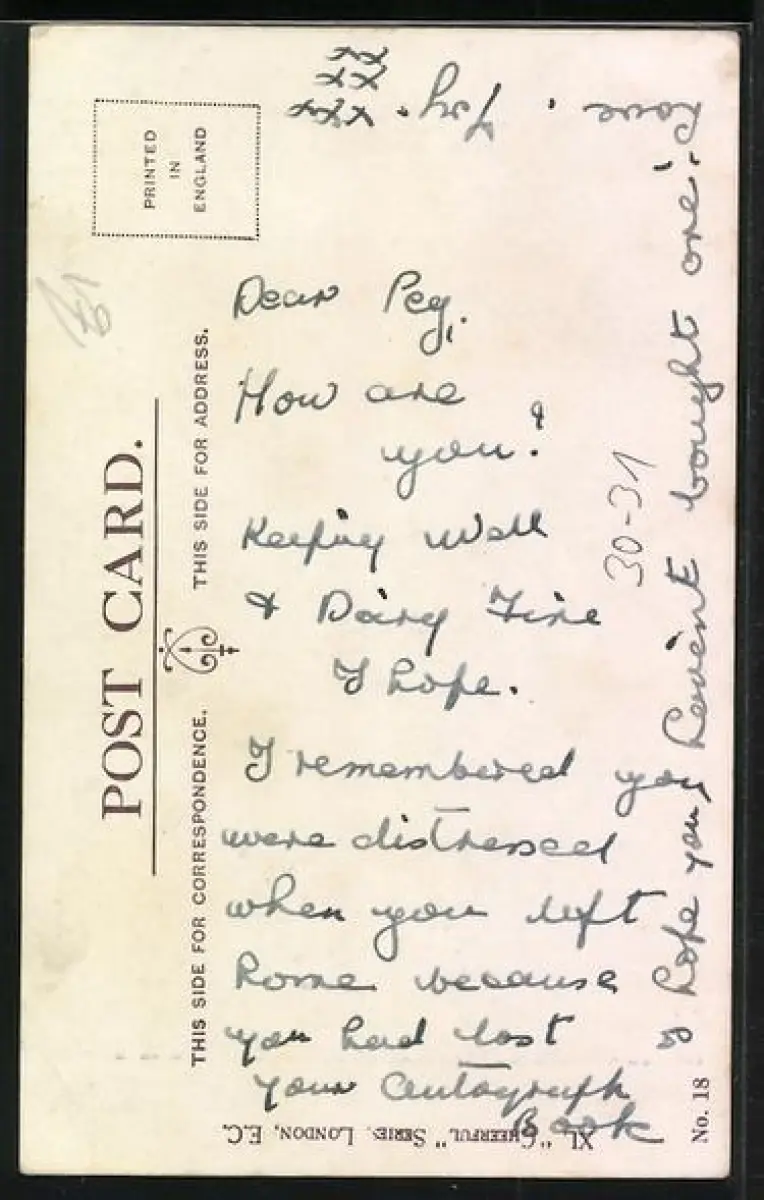 POST CARD.
THIS SIDE FOR CORRESPONDENCE.
THIS SIDE FOR ADDRESS.
PRINTED
IN
ENGLAND
Dear Peg,
How are
you?
Keeping well
& Doing Fine
I hope.
I remembered you
were distressed
when you left
home because
you had lost
your autograph
Book
so hope you havent bought one.
Love
Joy.
xx
xx
xxx
30-31
XL "CHEERFUL" SERIE. LONDON, E.C.
No. 18